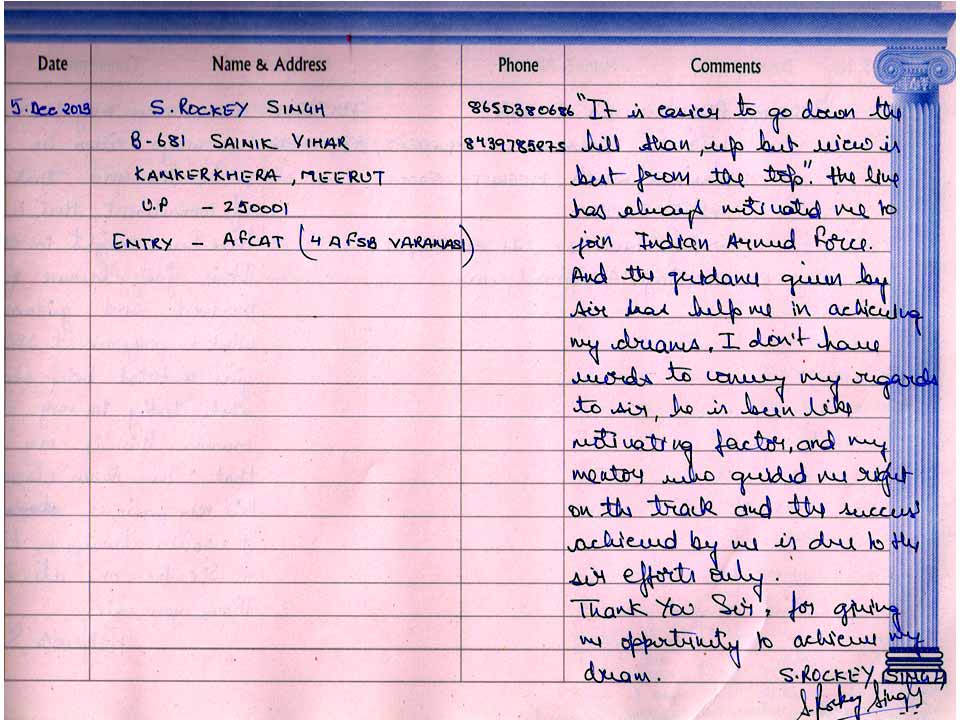 Date Name & Address Phone Comments
5. Dec 2013 S. ROCKEY SINGH 8650380686 "It is easier to go down the
B-681 SAINIK VIHAR 8439785275 hill than, up but view is
KANKERKHERA, MEERUT best from the top". the line
U.P - 250001 has always motivated me to
ENTRY - AFCAT (4 AFSB VARANASI) join Indian Armed Force.
And the guidance given by
sir has help me in achieving
my dreams. I don't have
words to convey my regards
to sir, he is been like
motivating factor, and my
mentor who guided me right
on the track and the success
achieved by me is due to the
sir efforts only.
Thank You Sir, for giving
me opportunity to achieve my
dream. S. ROCKEY SINGH
S. Rockey Singh